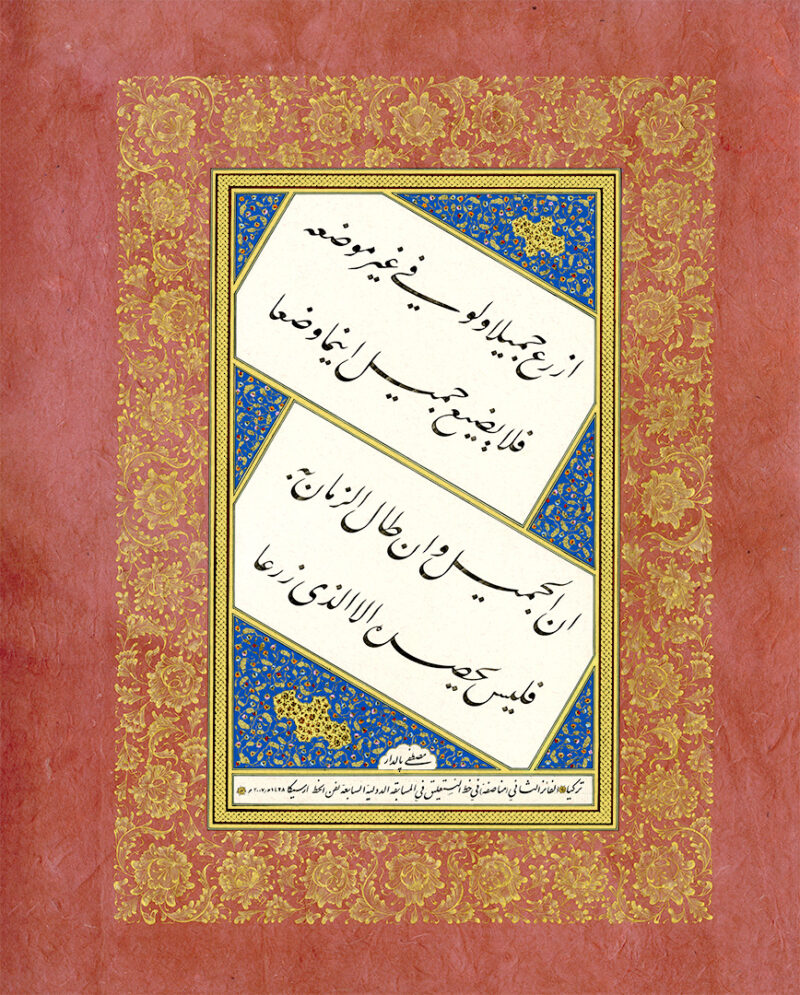 ازرع جميلا ولو في غير موضعه
فلا يضيع جميل اينما وضعا
ان الجميل وان طال الزمان به
فليس يحصده الا الذي زرعا
مصطفى پالدار
تركيا الفائز الثاني (مناصفة) في خط النستعليق في المسابقة الدولية السابعة لفن الخط ارسيكا ١٤٢٨هـ/٢٠٠٧م